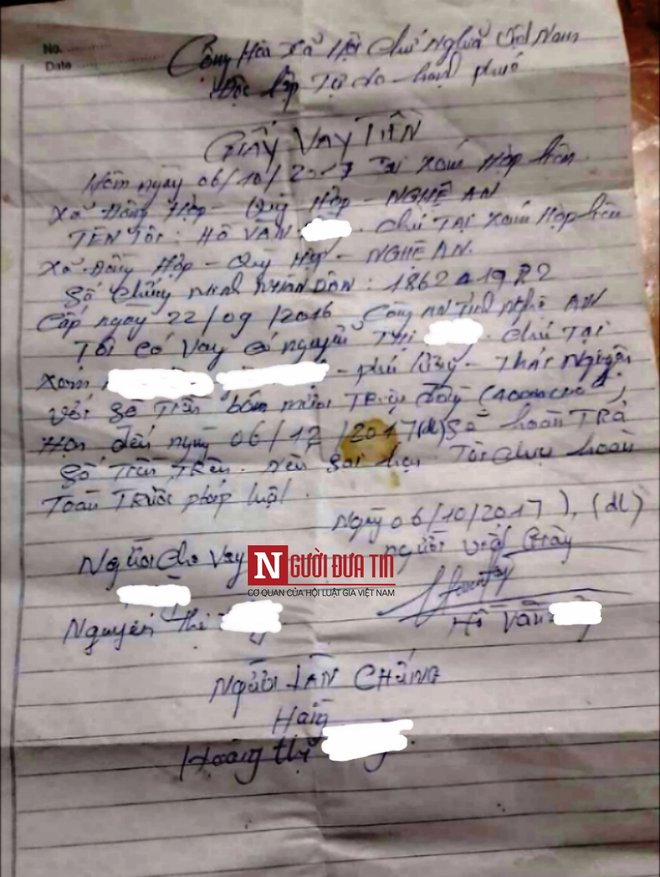 No.
Date
Cộng Hòa Xã Hội Chủ Nghĩa Việt Nam
Độc lập Tự do - hạnh phúc
GIẤY VAY TIỀN
Hôm ngày 06/10/2017 Tại Xóm Hợp liên
Xã Đồng Hợp - Quỳ Hợp - NGHỆ AN
TÊN TÔI: HỒ VĂN Chú TẠI Xóm Hợp liên
Xã Đồng Hợp - Quỳ Hợp - NGHỆ AN.
Số Chứng MINH NHÂN DÂN: 1862 1922
Cấp ngày 22/09/2016 Công AN Tỉnh Nghệ AN
Tôi Có Vay Cô nguyễn THị Chú TẠI
Xóm - phú lương - Thái Nguyên
Với Số Tiền bốn mươi Triệu đồng
Hẹn đến ngày 06/12/2017 (dl) Sẽ hoàn TRẢ
Số Tiền TRÊN. nếu Sai hẹn Tôi Chịu hoàn
Toàn Trước pháp luật.
Ngày 06/10/2017), (dl)
Người Cho Vay
người viết Giấy
NGƯỜI ĐƯA TIN
CƠ QUAN CỦA HỘI LUẬT GIA VIỆT NAM
Nguyễn Thị
Hồ Văn
NGƯỜI LÀM CHỨNG
Hoàng thị